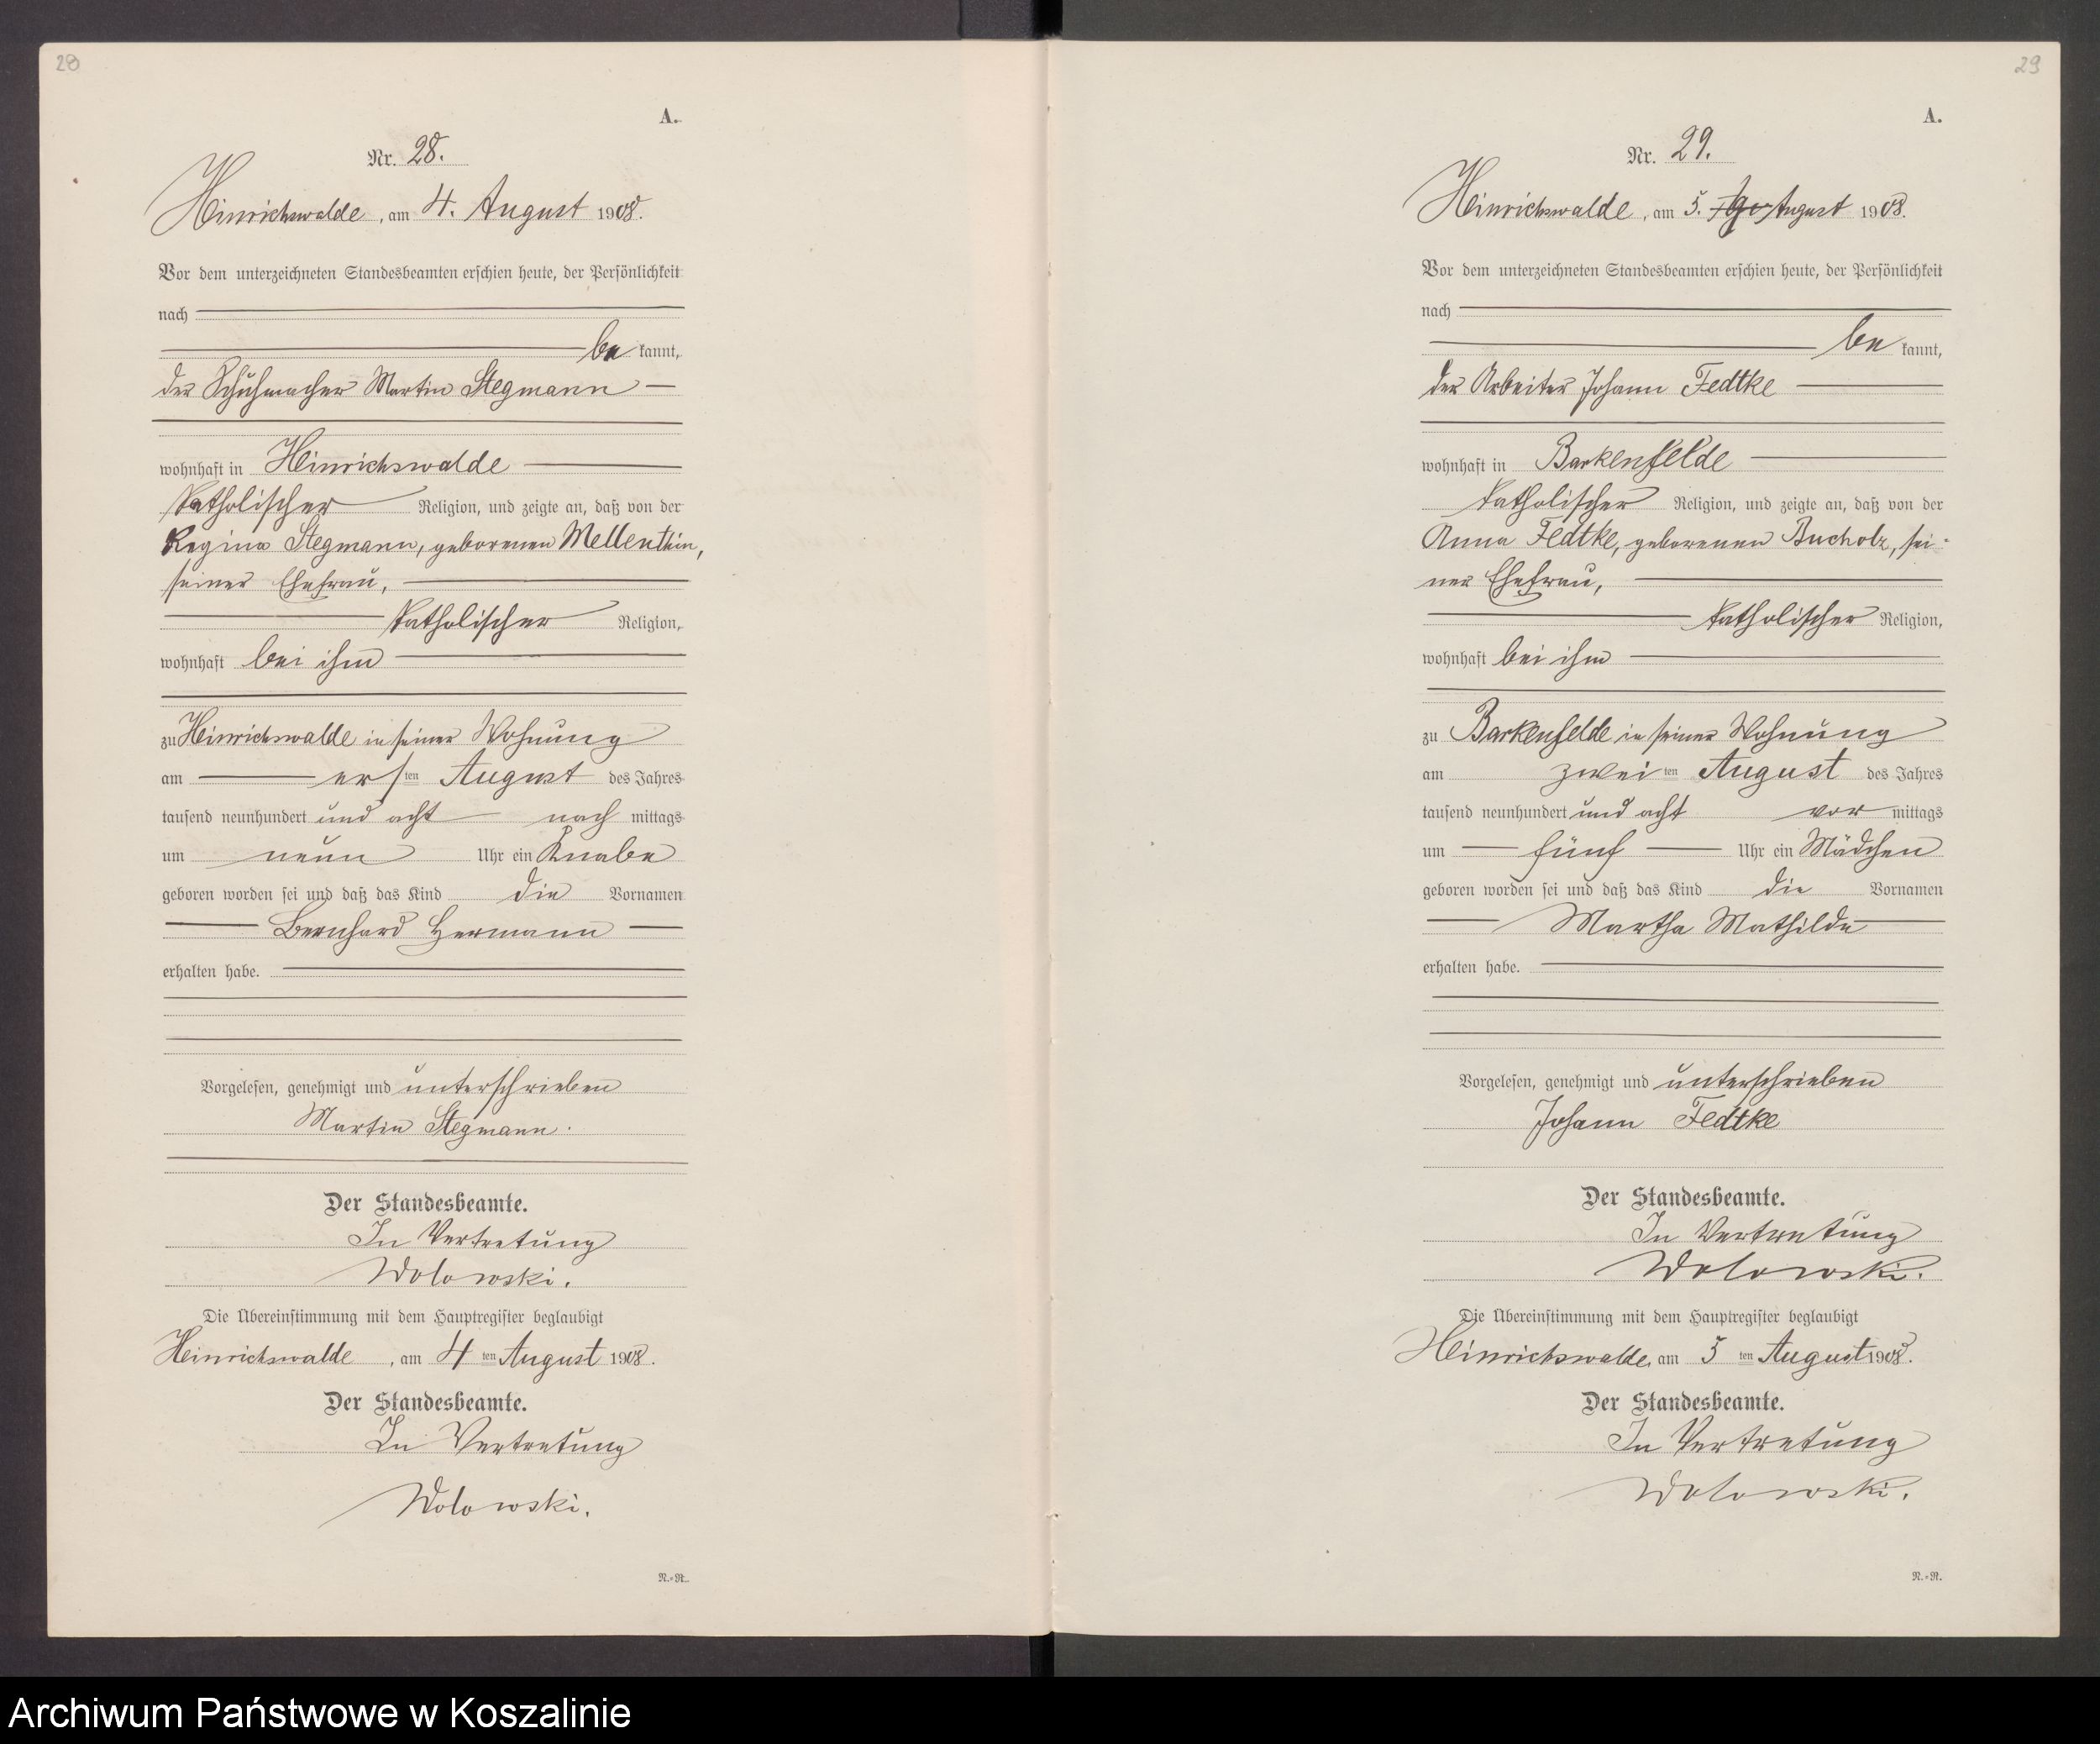 28
A.
Nr. 28.
Heinrichswalde, am 4. August 1908.
Vor dem unterzeichneten Standesbeamten erschien heute, der Persönlichkeit
nach
be kannt,
der Schuhmacher Martin Stegmann
wohnhaft in Heinrichswalde
katholischer Religion, und zeigte an, daß von der
Regina Stegmann, geborenen Mellenthin,
seiner Ehefrau,
katholischer Religion,
wohnhaft bei ihm
zu Heinrichswalde in seiner Wohnung
am ersten August des Jahres
tausend neunhundert und acht nach mittags
um neun Uhr ein Knabe
geboren worden sei und daß das Kind die Vornamen
Bernhard Hermann
erhalten habe.
Vorgelesen, genehmigt und unterschrieben
Martin Stegmann.
Der Standesbeamte.
In Vertretung
Wolowski.
Die Übereinstimmung mit dem Hauptregister beglaubigt
Heinrichswalde, am 4ten August 1908.
Der Standesbeamte.
In Vertretung
Wolowski.
N.-R.
29
A.
Nr. 29.
Heinrichswalde, am 5. August 1908.
Vor dem unterzeichneten Standesbeamten erschien heute, der Persönlichkeit
nach
be kannt,
der Arbeiter Johann Fedtke
wohnhaft in Barkenfelde
katholischer Religion, und zeigte an, daß von der
Anna Fedtke, geborenen Bucholz, sei-
ner Ehefrau,
katholischer Religion,
wohnhaft bei ihm
zu Barkenfelde in seiner Wohnung
am zweiten August des Jahres
tausend neunhundert und acht vor mittags
um fünf Uhr ein Mädchen
geboren worden sei und daß das Kind die Vornamen
Martha Mathilde
erhalten habe.
Vorgelesen, genehmigt und unterschrieben
Johann Fedtke
Der Standesbeamte.
In Vertretung
Wolowski.
Die Übereinstimmung mit dem Hauptregister beglaubigt
Heinrichswalde, am 5ten August 1908.
Der Standesbeamte.
In Vertretung
Wolowski.
N.-R.
Archiwum Państwowe w Koszalinie